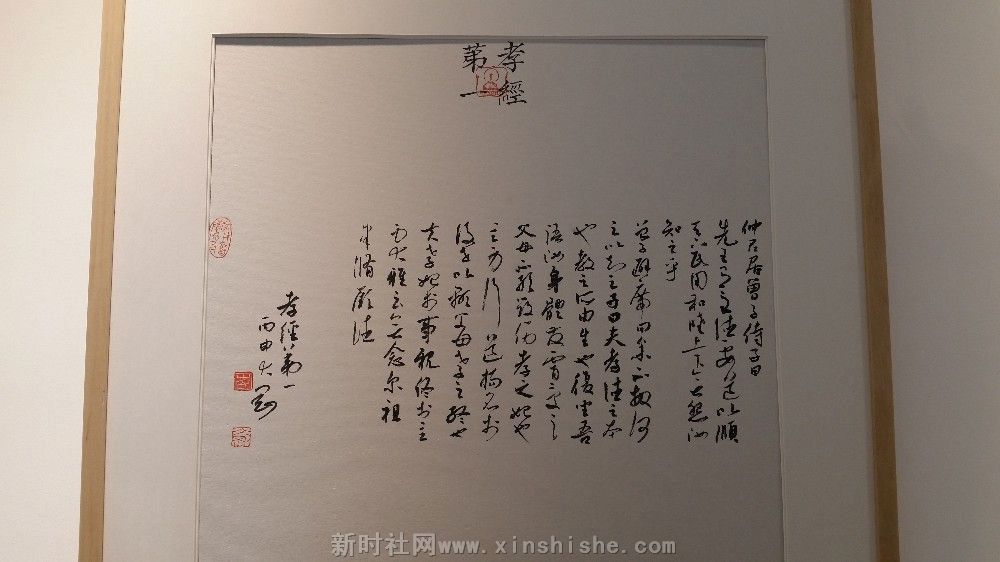 孝經
第一
仲尼居曾子侍子曰
先王有至德要道以順
天下民用和睦上下亡怨汝
知之乎
曾子避席曰參不敏何
足以知之子曰夫孝德之本
也教之所由生也復坐吾
語汝身體髮膚受之
父母不敢毀傷孝之始也
立身行道揚名於
後世以顯父母孝之終也
夫孝始於事親終於立
身大雅云亡念爾祖
聿脩厥德
孝經第一
丙申大
新时社网www.xinshishe.com